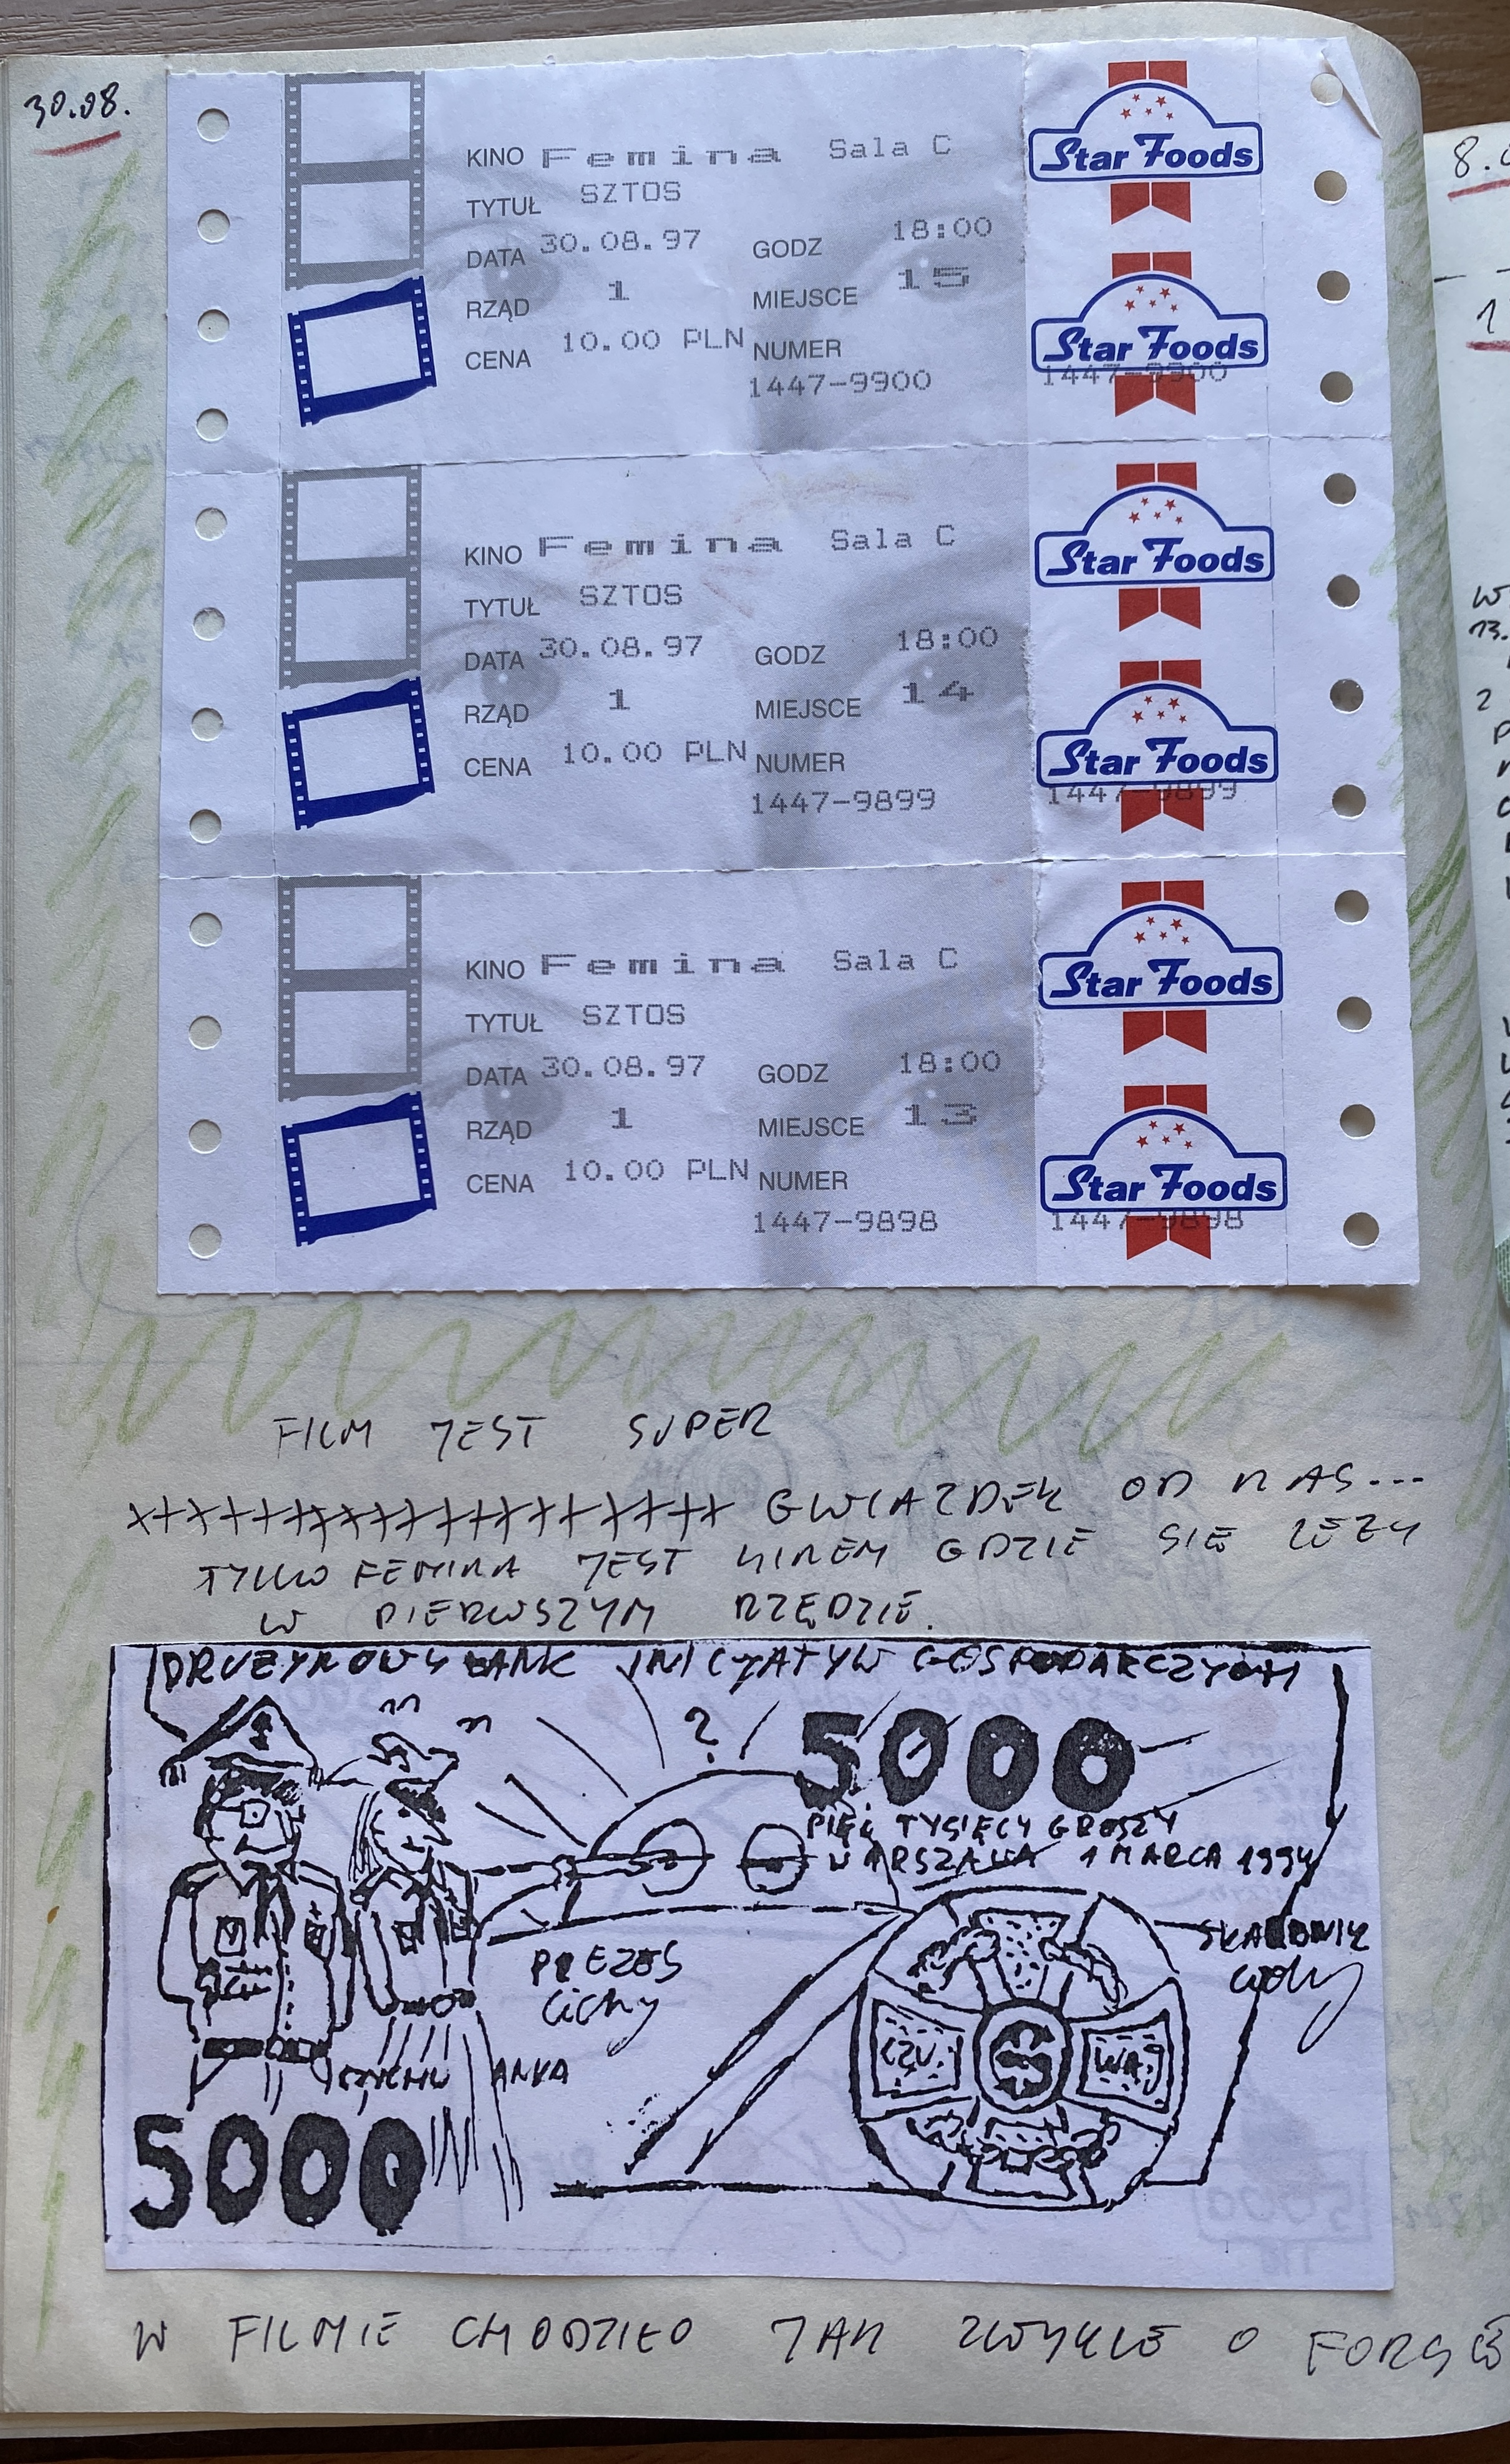 30.08.
KINO Femina Sala C
TYTUŁ SZTOS
DATA 30.08.97 GODZ 18:00
RZĄD 1 MIEJSCE 15
CENA 10.00 PLN NUMER
1447-9900
Star Foods
Star Foods
1447-9900
KINO Femina Sala C
TYTUŁ SZTOS
DATA 30.08.97 GODZ 18:00
RZĄD 1 MIEJSCE 14
CENA 10.00 PLN NUMER
1447-9899
Star Foods
Star Foods
1447-9899
KINO Femina Sala C
TYTUŁ SZTOS
DATA 30.08.97 GODZ 18:00
RZĄD 1 MIEJSCE 13
CENA 10.00 PLN NUMER
1447-9898
Star Foods
Star Foods
1447-9898
FILM JEST SUPER
GWIAZDEK OD NAS...
TYLKO FEMINA JEST KINEM GDZIE SIĘ LEŻY
W PIERWSZYM RZĘDZIE.
DRUŻYNOWY BANK INICJATYW GOSPODARCZYCH
?
5000
PIĘĆ TYSIĘCY GROSZY
WARSZAWA 1 MARCA 1994
PREZES
Cichy
SKARBNIK
CZUJ
WAJ
ANKA
5000
W FILMIE CHODZIŁO JAK ZWYKLE O FORSĘ